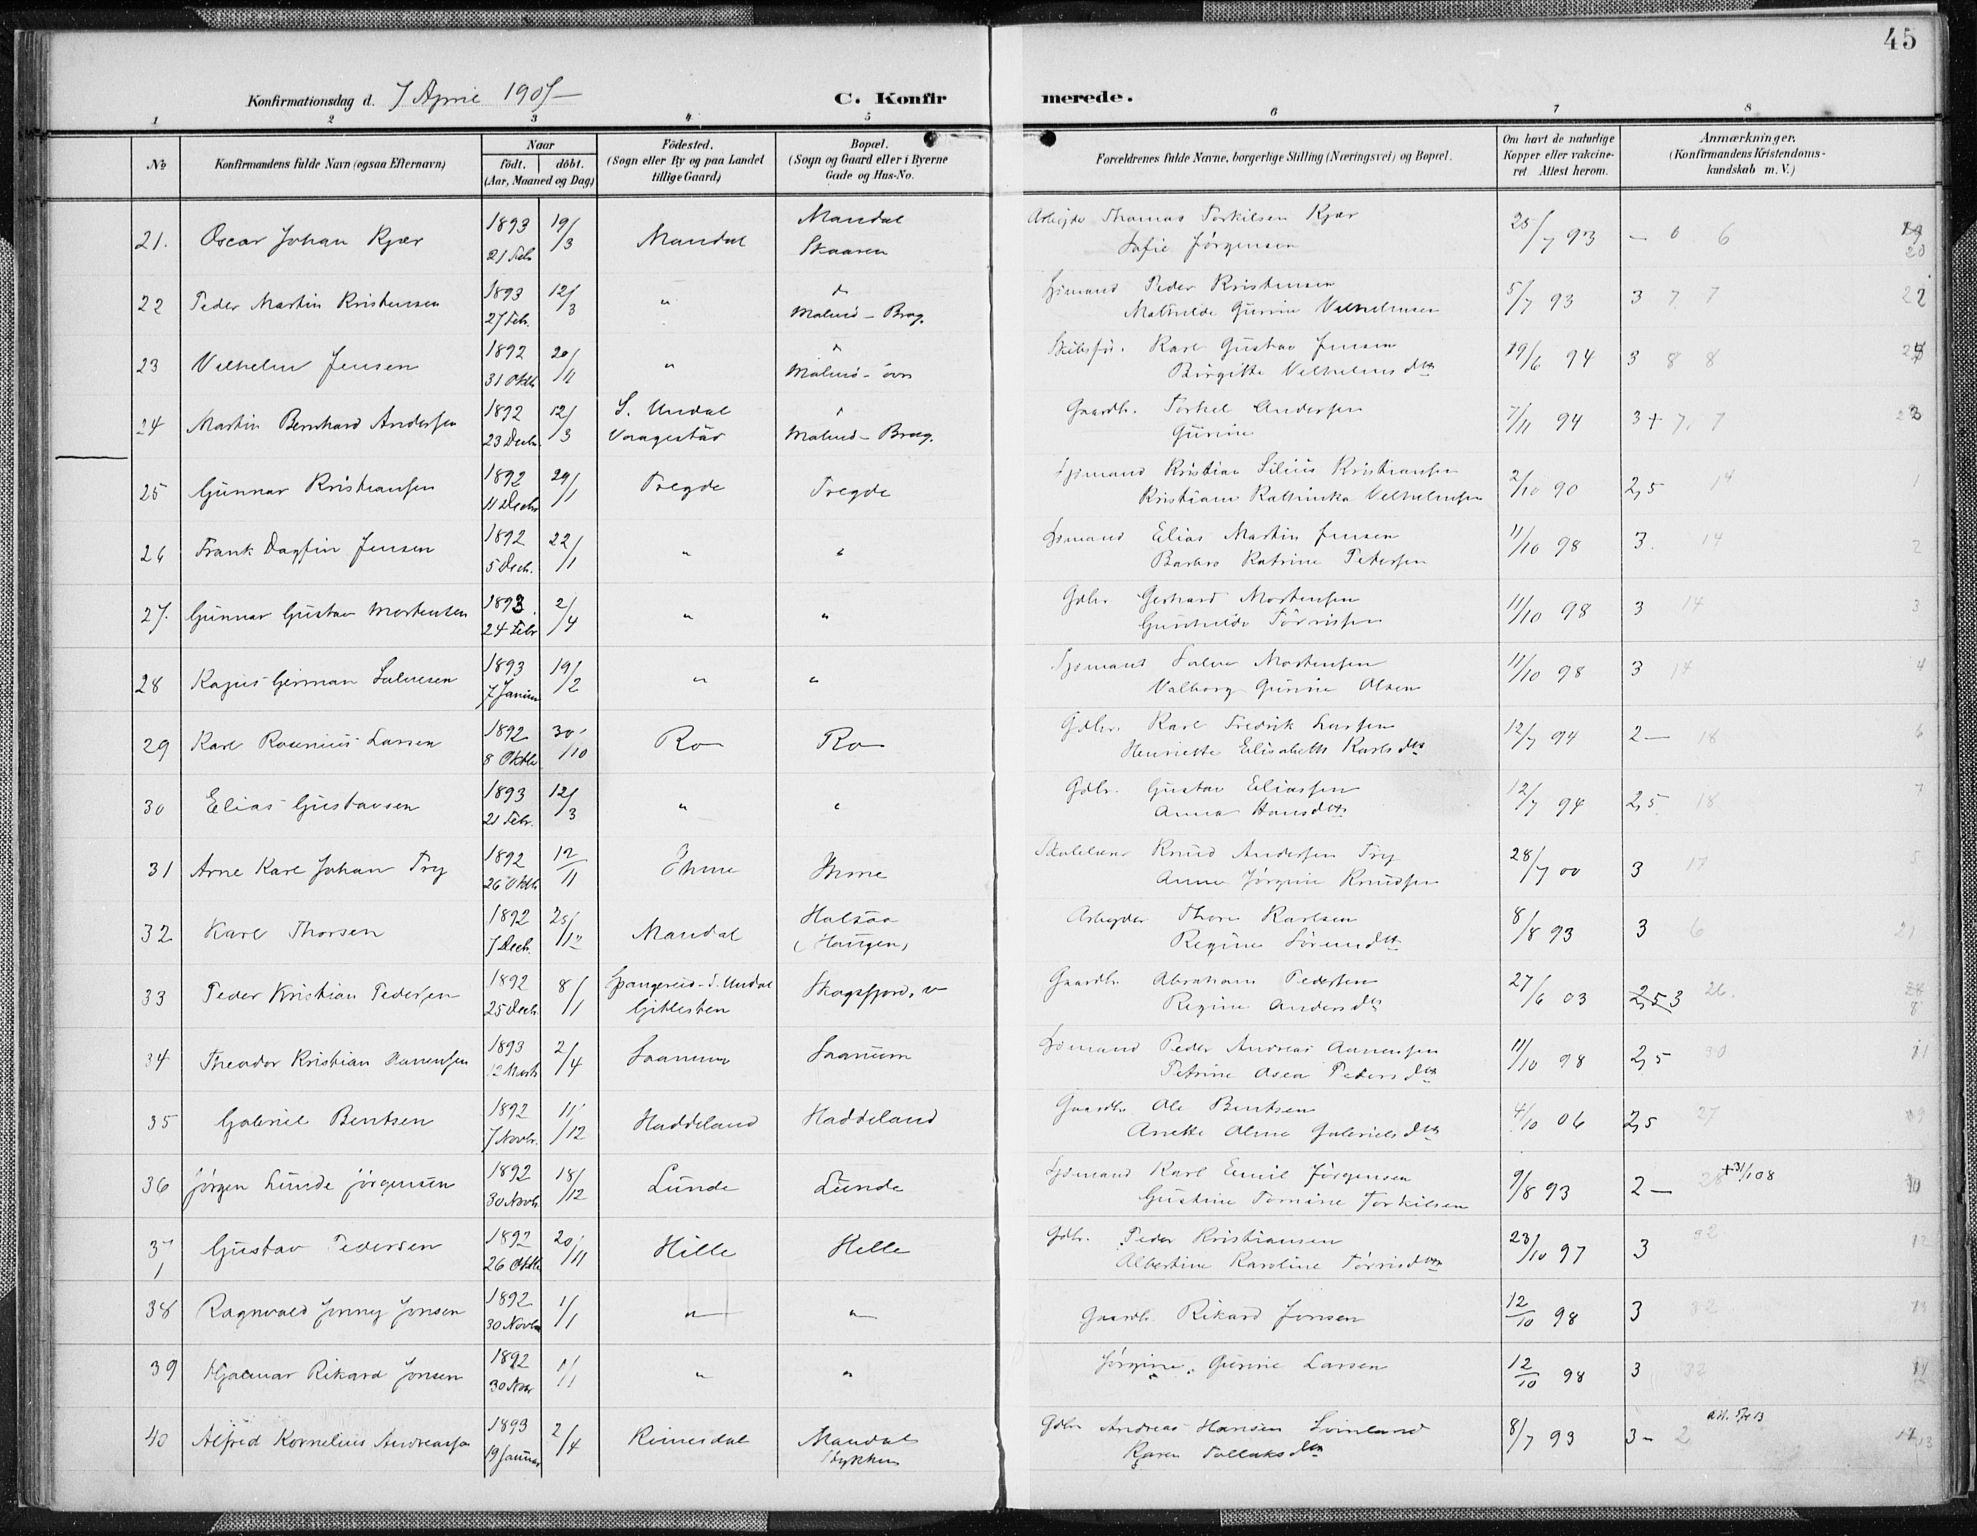 45
Konfirmationsdag d. 7 April 1907
C. Konfirmerede.
1 2 3 4 5 6 7 8
No
Konfirmandens fulde Navn (ogsaa Efternavn)
Naar
født. døbt.
(Aar, Maaned og Dag)
Fødested.
(Sogn eller By og paa Landet
tillige Gaard)
Bopæl.
(Sogn og Gaard eller i Byerne
Gade og Hus-No.
Forældrenes fulde Navne, borgerlige Stilling (Næringsvei) og Bopæl.
Om havt de naturlige
Kopper eller vakcine-
ret Attest herom.
Anmærkninger.
(Konfirmandens Kristendoms-
kundskab m. V.)
21. Oscar Johan Kjær 1893 21 Feb 19/3 Mandal Mandal Skaaren
Thomas Torkilsen Kjær
Sofie Jörgensen
25/7 93 6
22 Peder Martin Kristensen 1893 27 Feb. 12/3 " Malmö - Brog.
Peder Kristensen
Mathilde Gurine Vilhelmsen
5/7 93 3 7 7
23 Vilhelm Jensen 1892 31 Oktb 20/11 " Malmö - övr
Skibsför. Karl Gustav Jensen
Birgitte Vilhelmsdtr
19/6 94 3 8 8
24 Martin Bernhard Andersen 1892 23 Decbr 12/3 S. Undal Malmö - Brog.
Gaardbr. Torkel Andersen
Gurine
7/11 94 3+ 7. 7
25 Gunnar Kristiansen 1892 11 Decbr 29/1 Tregde Tregde
Sjömand Kristian Silius Kristiansen
Kristiane Kathinka Vilhelmsen
2/10 90 2,5 14 1
26 Frank Dagfin Jensen 1892 5 Decb. 22/1 " "
Sjömand Elias Martin Jensen
Barbro Katrine Petersen
11/10 98 3. 14 2
27. Gunnar Gustav Mortensen 1893 24 Febr 2/4 " "
Gdbr Gerhard Mortensen
Gunhilde Törrisen
11/10 98 3 14 3
28 Kasius German Salvesen 1893 7 Januar 19/2 " "
Sjömand Salve Mortensen
Valborg Gurine Olsen
11/10 98 3 14 4
29 Karl Rosenius Larsen 1892 8 Oktbr 30/10 Ro Ro
Gdbr. Karl Fredrik Larsen
Henriette Elisabeth Karlsdtr
12/7 94 2 — 18 6
30 Elias Gustavsen 1893 21 Febr. 12/3 " "
Gdbr. Gustav Eliassen
Anna Hansdtr
12/7 94 2,5 18 7
31 Arne Karl Johan Try 1892 26 Oktb 12/11 Öhme Hime
Knud Andersen Try
Anne Jörgine Knudsen
28/7 00 3 17 5
32 Karl Thorsen 1892 7 Decb. 25/12 Mandal Halsaa (Haugen)
Arbeyder Thore Karlsen
Regine Sörensdtr
8/8 93 3 6 21
33 Peder Kristian Pedersen 1892 25 Decb 8/1 Spangereid - S. Undal Gitlesten Skogsfjord
Gaardbr. Abraham Pedersen
Regine Andersdtr
27/6 03 2,5 3 26. 8
34 Theodor Kristian Aanensen 1893 12 Marts 2/4 Saanum Saanum
Sjömand Peder Andreas Aanensen
Petrine Asea Pedersdtr
11/10 98 2,5 30 11
35 Gabriel Bentsen 1892 7 Novbr. 11/12 Haddeland Haddeland
Gaardbr. Ole Bentsen
Anette Oline Gabrielsdtr
4/10 06 2,5 27 9
36 Jörgen Lunde Jörgensen 1892 30 Novb. 18/12 Lunde Lunde
Sjömand Karl Emil Jörgensen
Gustine Tomine Torkilsen
9/8 93 2 — 28 + 31/1 08 10
37 Gustav Pedersen 1892 26 Oktbr 20/11 Hille Hille
Gdbr. Peder Kristiansen
Albertine Karoline Törrisdtr
23/10 97 3 32 12
38 Ragnvald Jonny Jonsen 1892 30 Novbr 1/1 " "
Gaardbr. Rikard Jonsen
12/10 98 3 32 13
39 Hjalmar Rikard Jonsen 1892 30 Nov 1/1 " "
Jörgine Gurine Larsen
12/10 98 3 32 14
40 Alfred Kornelius Andreassen 1893 19 Januar 2/4 Rimesdal Mandal
Gdbr Andreas Hansen Svinland
Karen Tollaksdtr
8/7 93 3 - 2